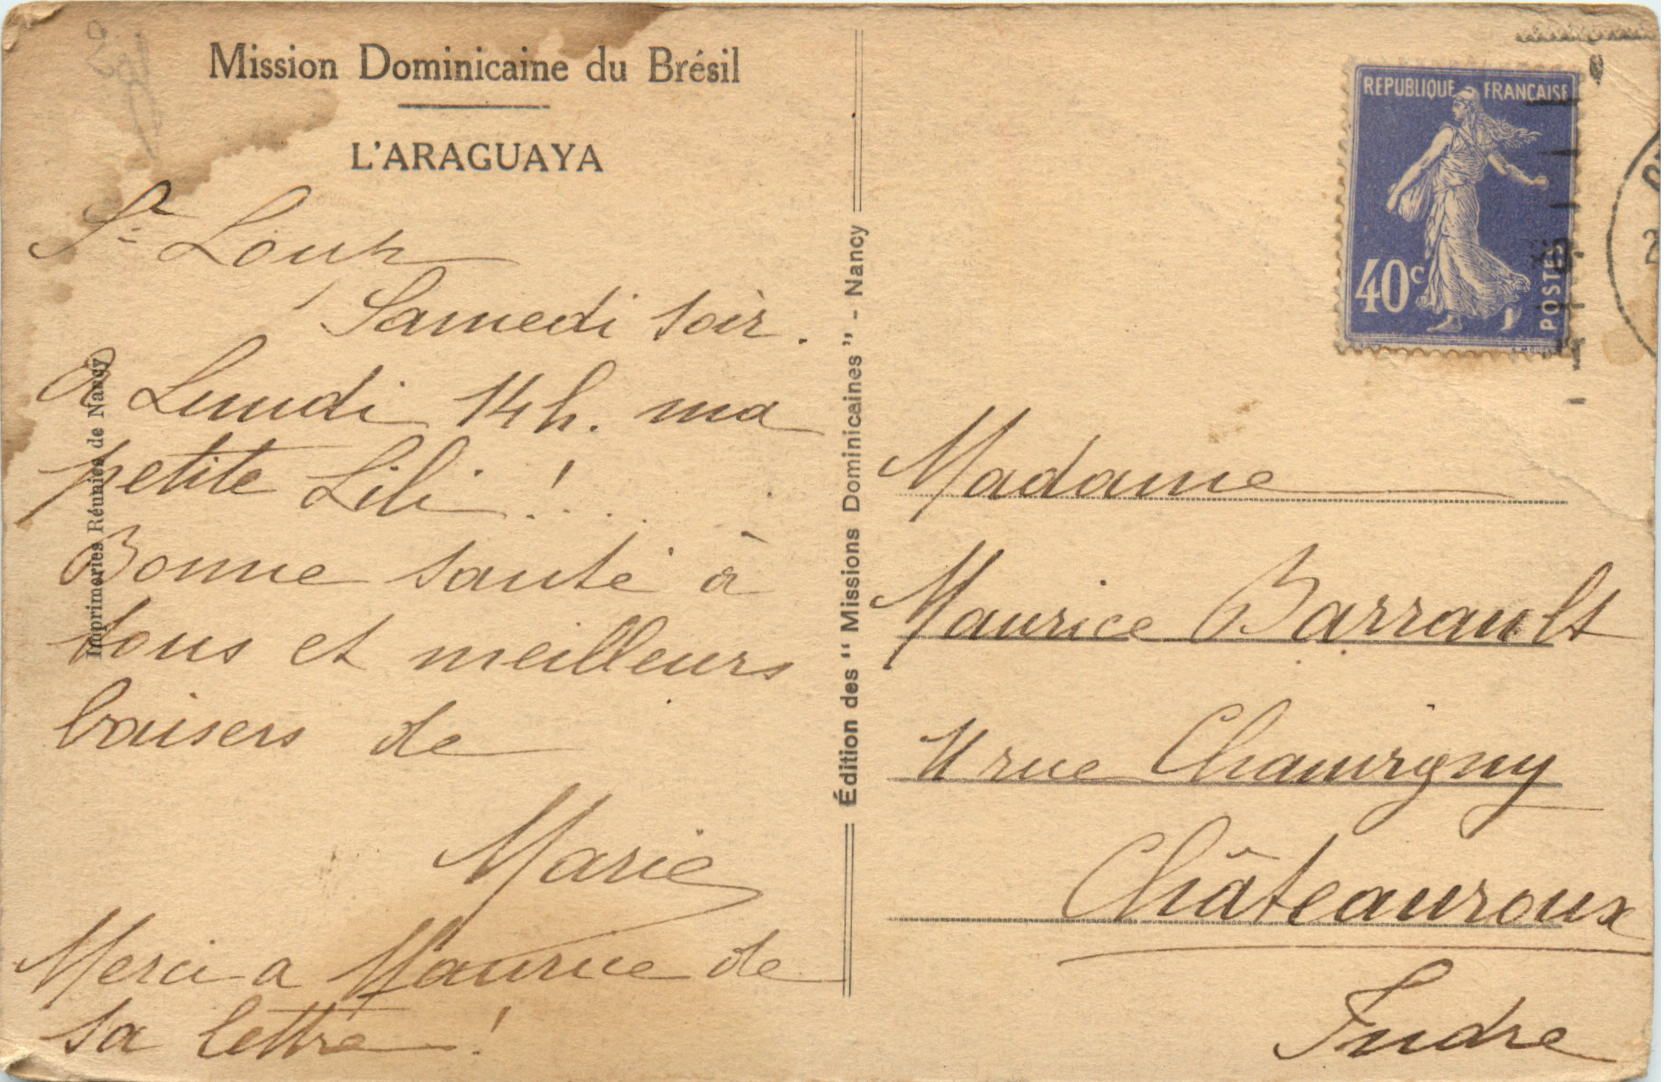 Mission Dominicaine du Brésil
L'ARAGUAYA
St Loup
Samedi soir.
A Lundi 14h. ma
petite Lili !...
Bonne santé à
tous et meilleurs
baisers de
Marie
Merci a Maurice de
sa lettre !
Imprimeries Réunies de Nancy
Édition des "Missions Dominicaines" - Nancy
REPUBLIQUE FRANÇAISE
40c
POSTES
Madame
Maurice Barrault
11 rue Chauvigny
Châteauroux
Indre